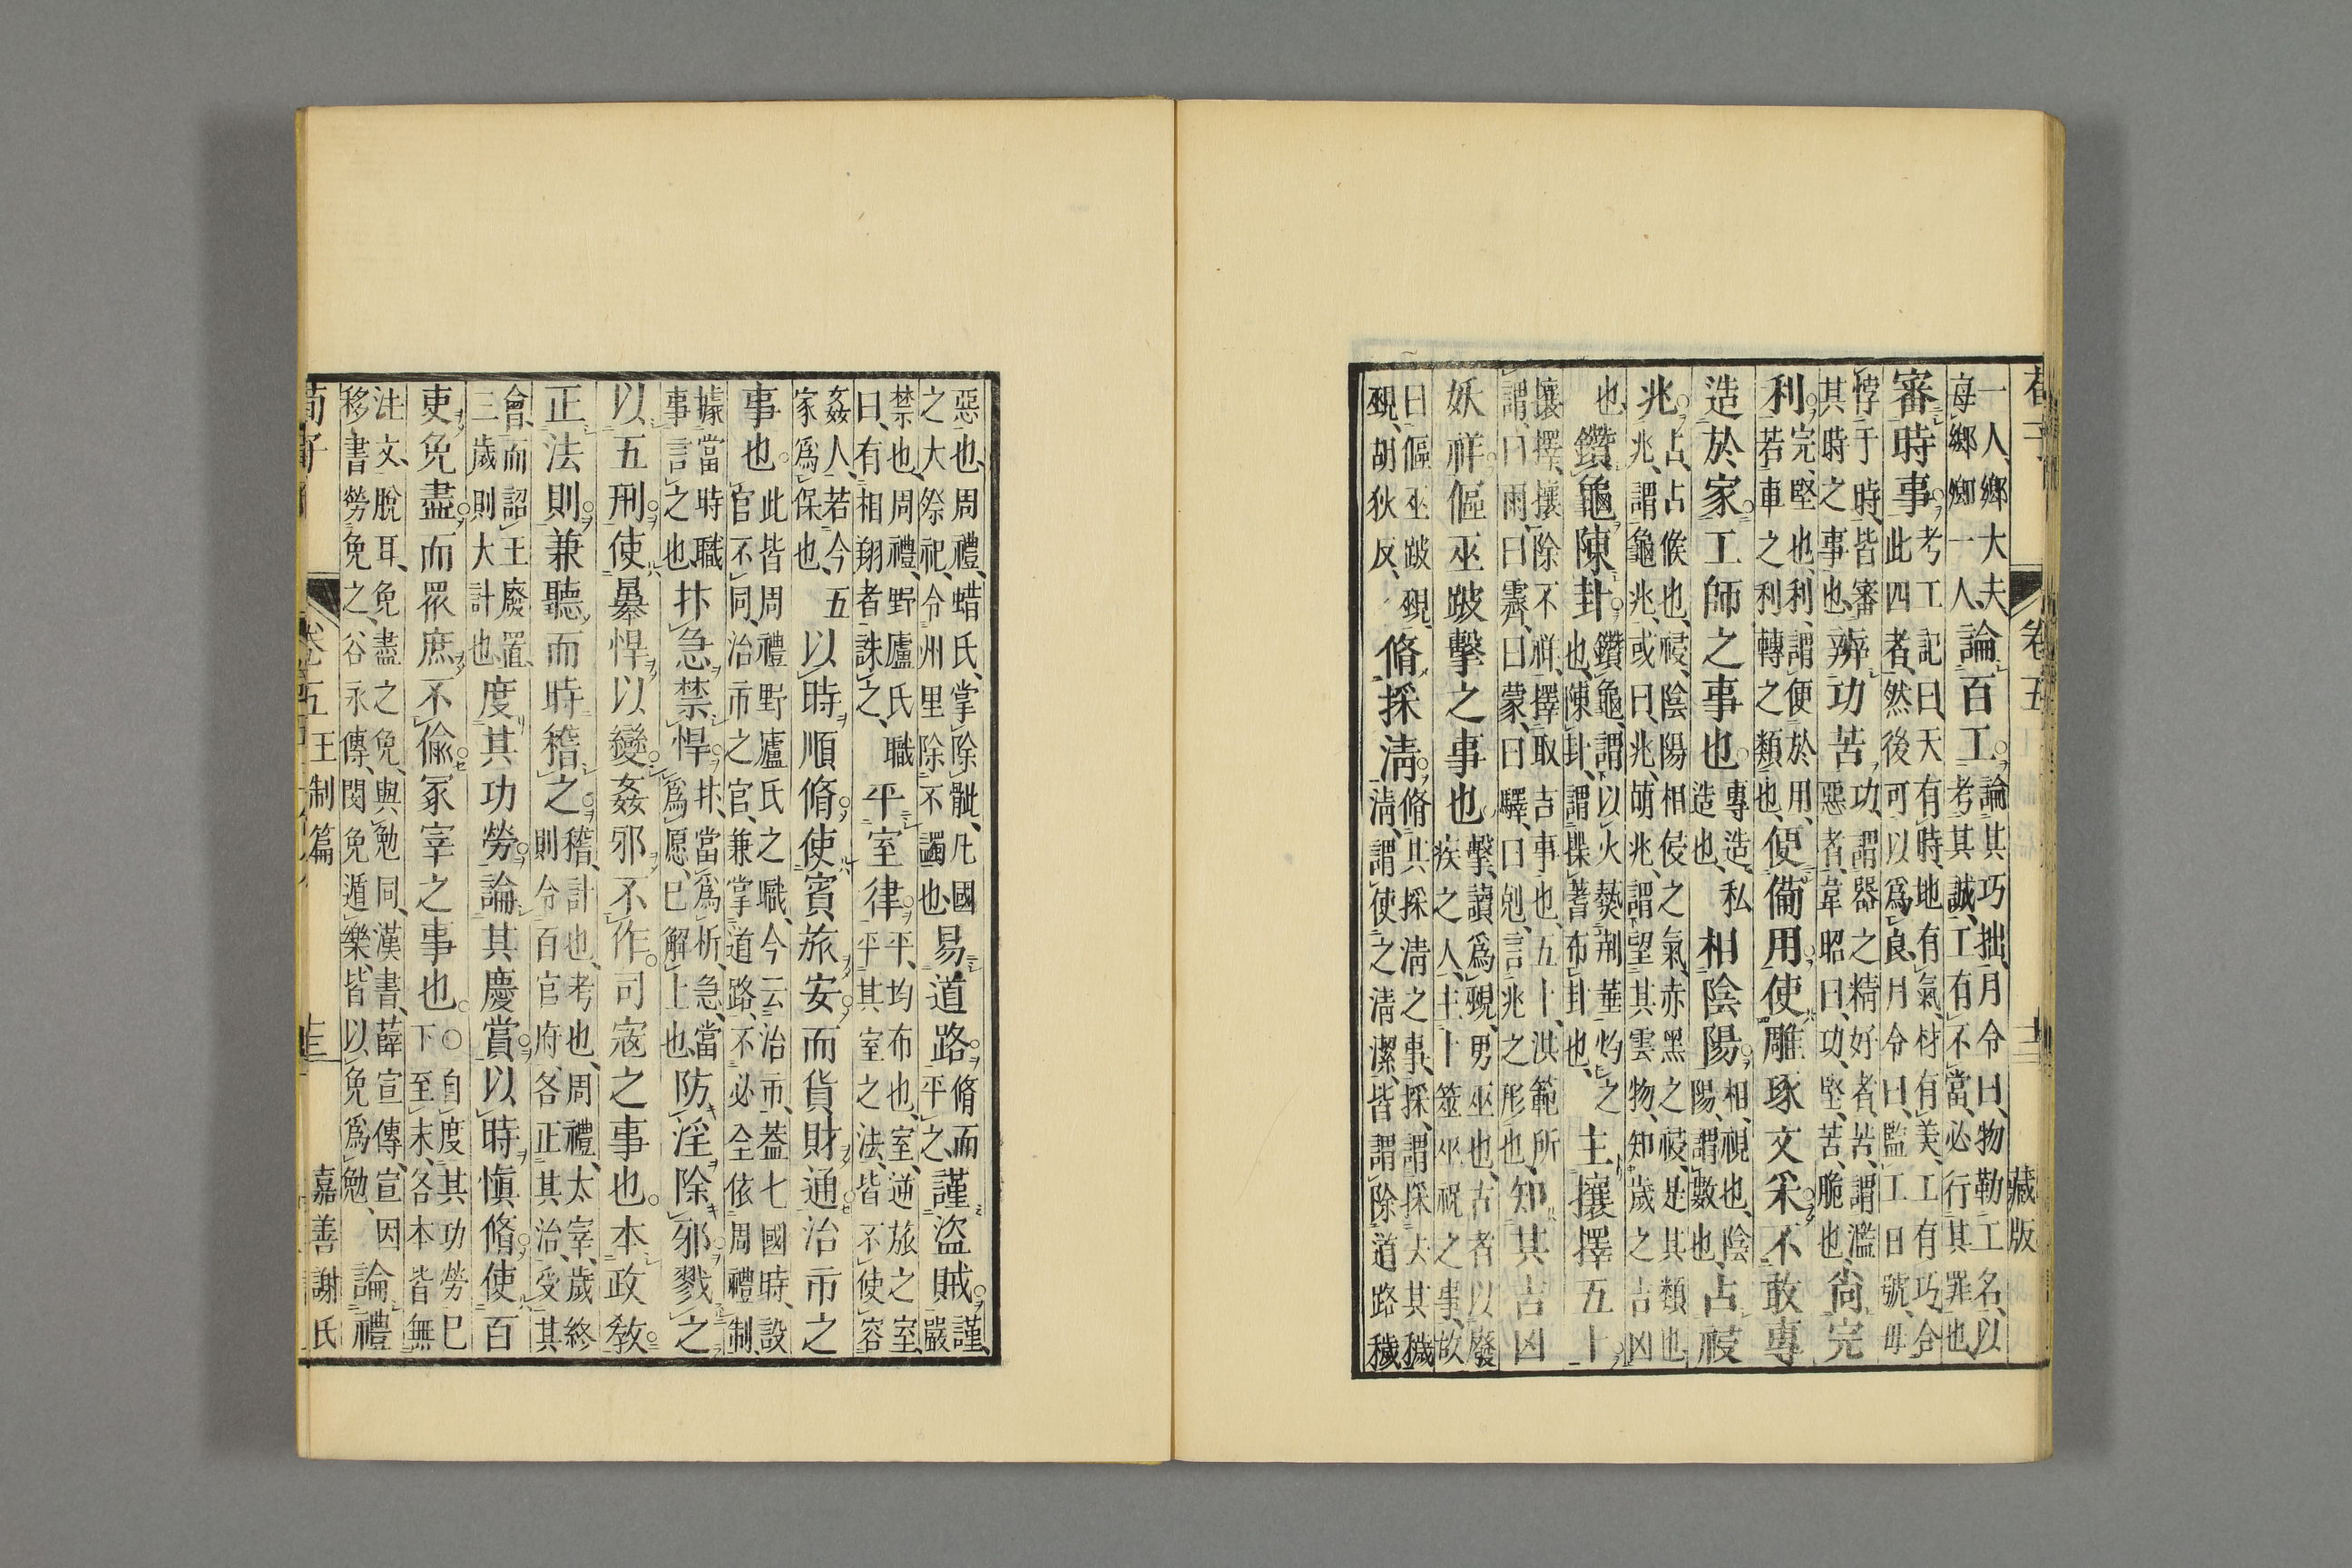 荀子 卷五 十二 藏版
一人、鄉大夫、每鄉卿一人、論百工論其巧拙、月令曰、物勒工名、以考其誠、工有不當、必行其罪也
審時事考工記曰、天有時、地有氣、材有美、工有巧、合此四者、然後可以為良、月令曰、監工日號、毋
悖于時、皆審其時之事也、辨功苦功、謂器之精好者、苦、謂濫惡者、韋昭曰、功、堅、苦、脆也、尙完
利完、堅也、利、謂便於用、若車之利轉之類也、便備用使雕琢文采不敢專
造於家工師之事也專造、私造也、相陰陽相、視也、陰陽、謂數也、占祲
兆占、占候也、祲、陰陽相侵之氣、赤黑之祲、是其類也兆、謂龜兆、或曰、兆、萌兆、謂望其雲物、知歲之吉凶
也鑽龜陳卦鑽龜、謂以火爇荆菙灼之也、陳卦、謂揲蓍布卦也、主攘擇五卜
攘擇、攘除不祥、擇取吉事也、五卜、洪範所謂、曰雨、曰霽、曰蒙、曰驛、曰剋、言兆之形也、知其吉凶
妖祥傴巫跛擊之事也擊、讀為覡、男巫也、古者以廢疾之人、主卜筮巫祝之事、故
曰傴巫跛覡、覡、胡狄反、脩採淸脩其採淸之事、採、謂採去其穢淸、謂使之淸潔、皆謂除道路穢
惡也、周禮、蜡氏、掌除骴、凡國之大祭祀、令州里除不蠲也、易道路脩而平之、謹盜賊謹、嚴
禁也、周禮、野廬氏、職曰、有相翔者誅之、平室律平、均布也、室、逆旅之室、平其室之法、皆不使容
姦人、若今五家為保也、以時順脩使賓旅安而貨財通治市之
事也此皆周禮野廬氏之職、今云治市、葢七國時、設官不同、治市之官、兼掌道路、不必全依周禮制、
據當時職事言之也、抃急禁悍抃、當為析、急、當為愿、已解上也、防淫除邪戮之
以五刑使暴悍以變姦邪不作司寇之事也本政敎
正法則兼聽而時稽之稽、計也、考也、周禮、太宰、歲終則令百官府、各正其治、受其
會、而詔王廢置、三歲則大計也、度其功勞論其慶賞以時愼脩使百
吏免盡而眾庶不偸冢宰之事也○自度其功勞已下至末、各本皆無
注文、脫耳、免盡之免、與勉同、漢書、薛宣傳、宣因移書勞免之、谷永傳、閔免遁樂、皆以免為勉、論禮
荀子 卷五 王制篇 十三 嘉善謝氏